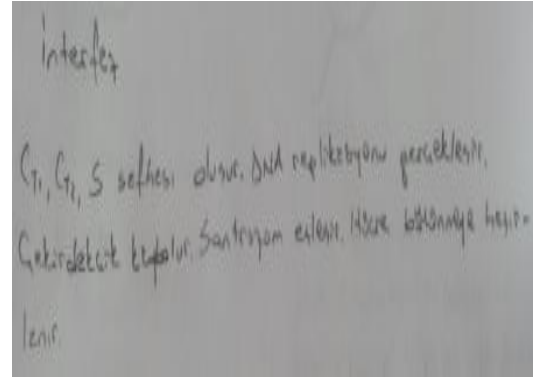 İnterfez
G1, G2, S safhası oluşur. DNA replikasyonu gerçekleşir.
Çekirdekcik kaybolur. Santrozom eşlenir. Hücre bölünmeye hazır-
lanır.